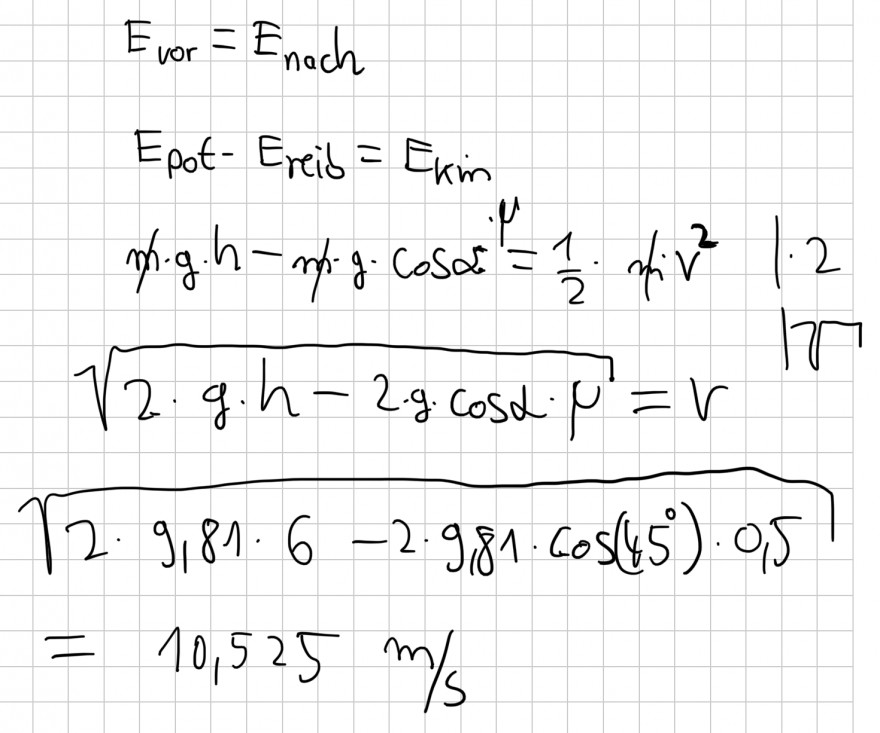 E_vor = E_nach
E_pot - E_reib = E_kin
m·g·h - m·g·cosα·μ = 1/2 · m·v² |·2
|√
√(2·g·h - 2·g·cosα·μ) = v
√(2·9,81·6 - 2·9,81·cos(45°)·0,5)
= 10,525 m/s